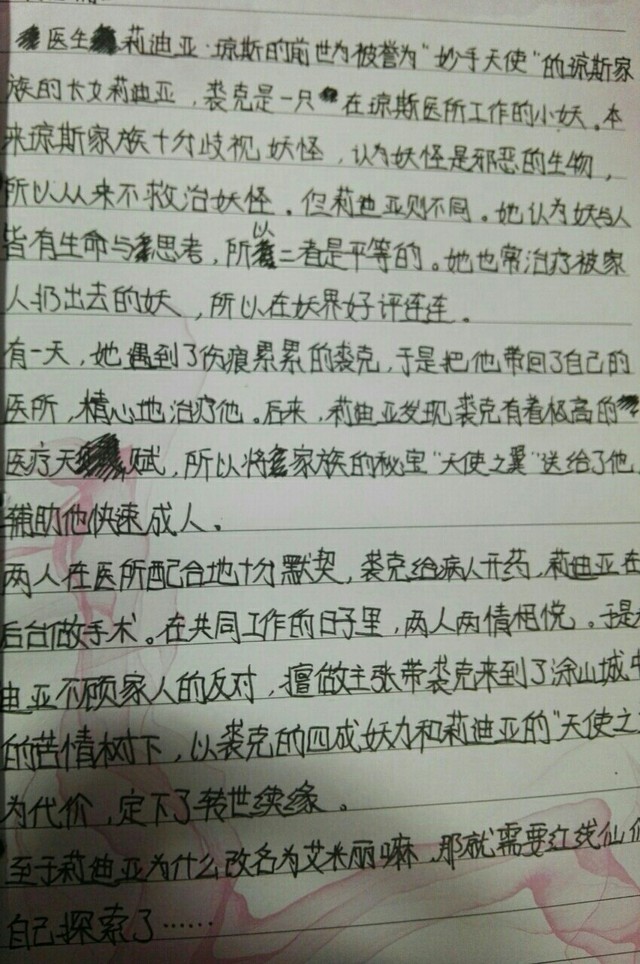 医生莉迪亚·琼斯的前世为被誉为“妙手天使”的琼斯家
族的长女莉迪亚，裘克是一只在琼斯医所工作的小妖。本
来琼斯家族十分歧视妖怪，认为妖怪是邪恶的生物，
所以从来不救治妖怪。但莉迪亚则不同。她认为妖与人
皆有生命与思考，所以二者是平等的。她也常治疗被家
人扔出去的妖，所以在妖界好评连连。
有一天，她遇到了伤痕累累的裘克，于是把他带回了自己的
医所，精心地治疗他。后来，莉迪亚发现裘克有着极高的
医疗天赋，所以将家族的秘宝“天使之翼”送给了他，
辅助他快速成人。
两人在医所配合地十分默契，裘克给病人开药，莉迪亚在
后台做手术。在共同工作的日子里，两人两情相悦。于是
迪亚不顾家人的反对，擅做主张带裘克来到了涂山城中
的苦情树下，以裘克的四成妖力和莉迪亚的“天使之
为代价，定下了转世续缘。
至于莉迪亚为什么改名为艾米丽嘛，那就需要红线仙们
自己探索了……